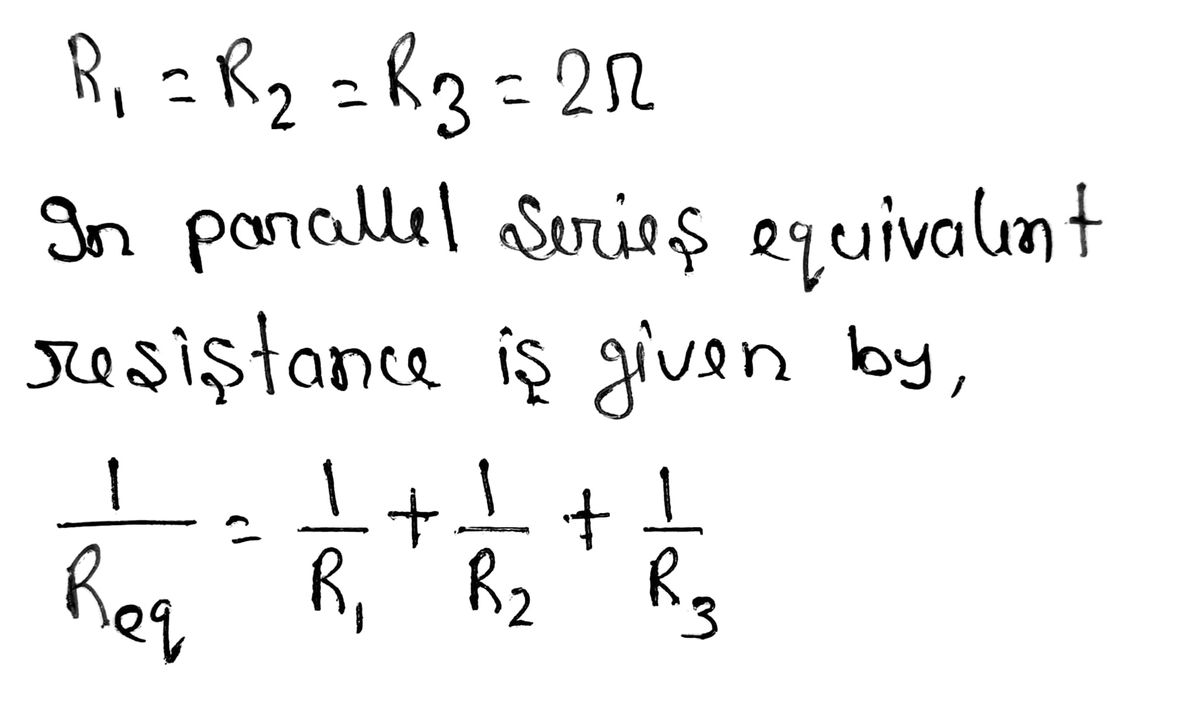 R₁ = R₂ = R₃ = 2Ω
In parallel series equivalent
resistance is given by,
1/Req = 1/R₁ + 1/R₂ + 1/R₃